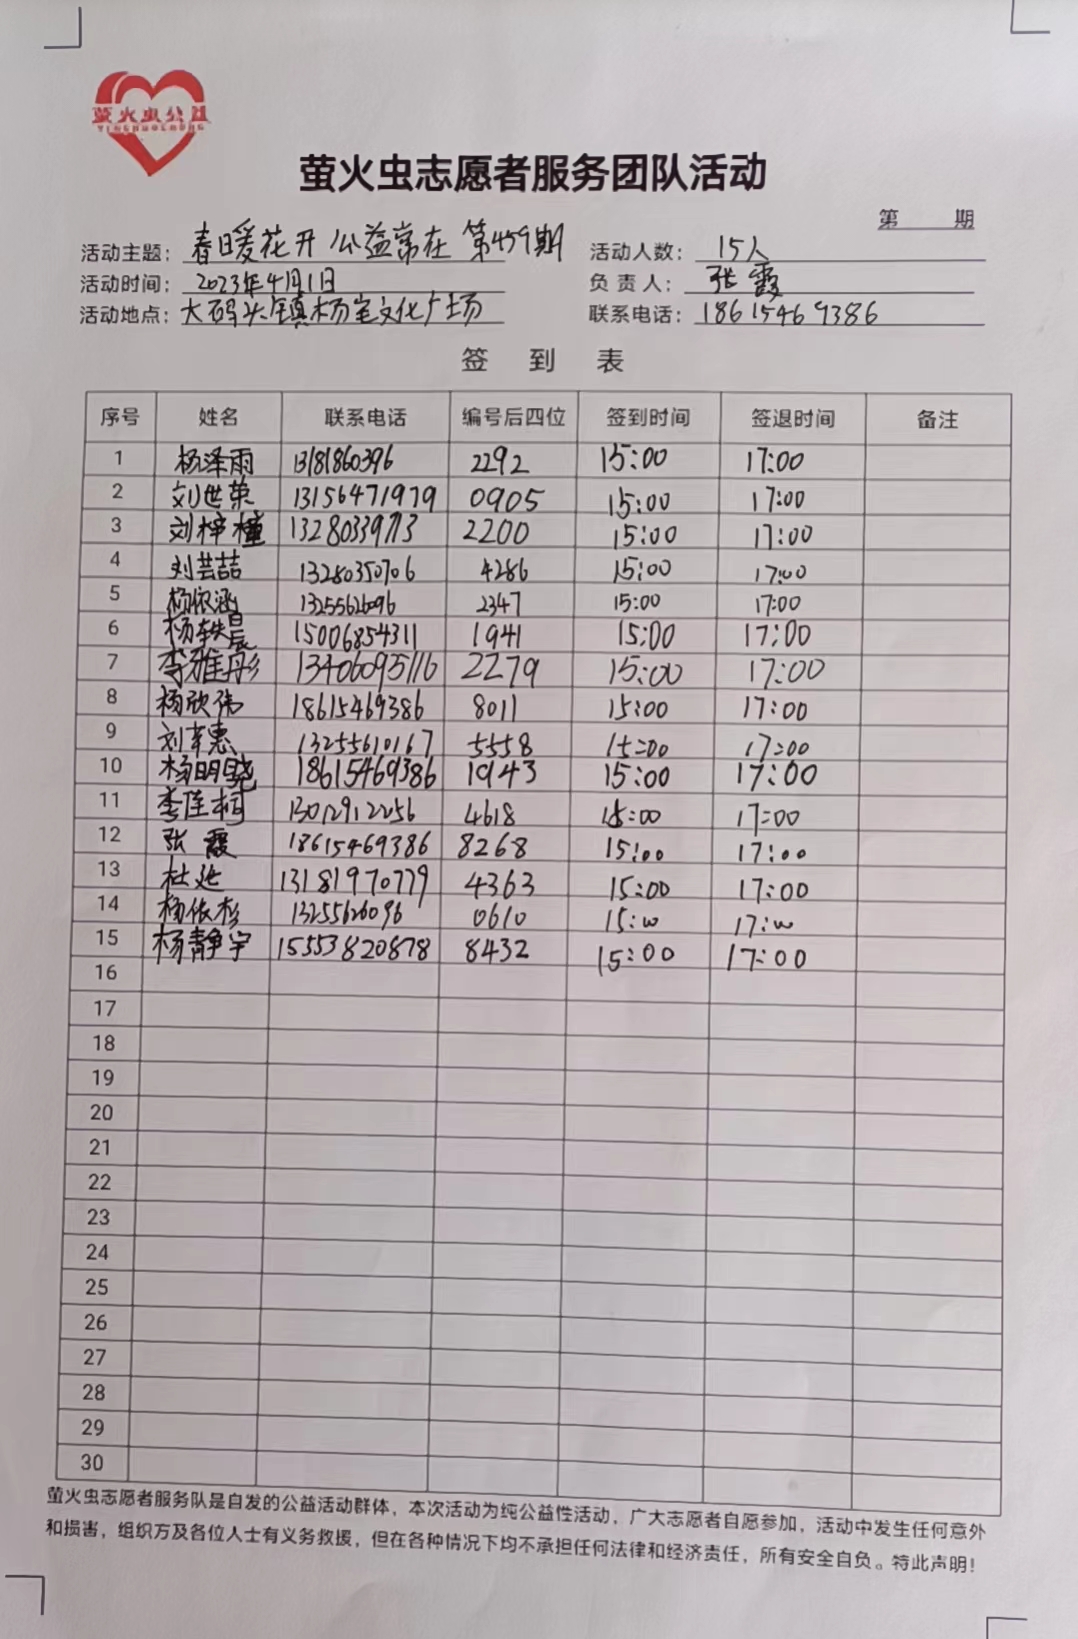 萤火虫公益
YINGHUOCHONG
萤火虫志愿者服务团队活动
第 期
活动主题: 春暖花开 公益常在 第459期 活动人数: 15人
活动时间: 2023年4月1日 负责人: 张霞
活动地点: 大码头镇杨宅文化广场 联系电话: 18615469386
签 到 表
序号 姓名 联系电话 编号后四位 签到时间 签退时间 备注
1 杨泽雨 13181860396 2292 15:00 17:00
2 刘世荣 13156471979 0905 15:00 17:00
3 刘梓橦 13280339713 2200 15:00 17:00
4 刘芸喆 13280350706 4286 15:00 17:00
5 杨依涵 13255626096 2347 15:00 17:00
6 杨轶晨 15006854311 1941 15:00 17:00
7 李雅彤 13406095116 2279 15:00 17:00
8 杨欣伟 18615469386 8011 15:00 17:00
9 刘辛惠 13255610167 5558 15:00 17:00
10 杨明晓 18615469386 1943 15:00 17:00
11 李佳柯 13012912256 4618 15:00 17:00
12 张霞 18615469386 8268 15:00 17:00
13 杜延 13181970779 4363 15:00 17:00
14 杨依杉 13255626096 0610 15:00 17:00
15 杨静宇 15553820878 8432 15:00 17:00
16
17
18
19
20
21
22
23
24
25
26
27
28
29
30
萤火虫志愿者服务队是自发的公益活动群体，本次活动为纯公益性活动，广大志愿者自愿参加，活动中发生任何意外
和损害，组织方及各位人士有义务救援，但在各种情况下均不承担任何法律和经济责任，所有安全自负。特此声明！